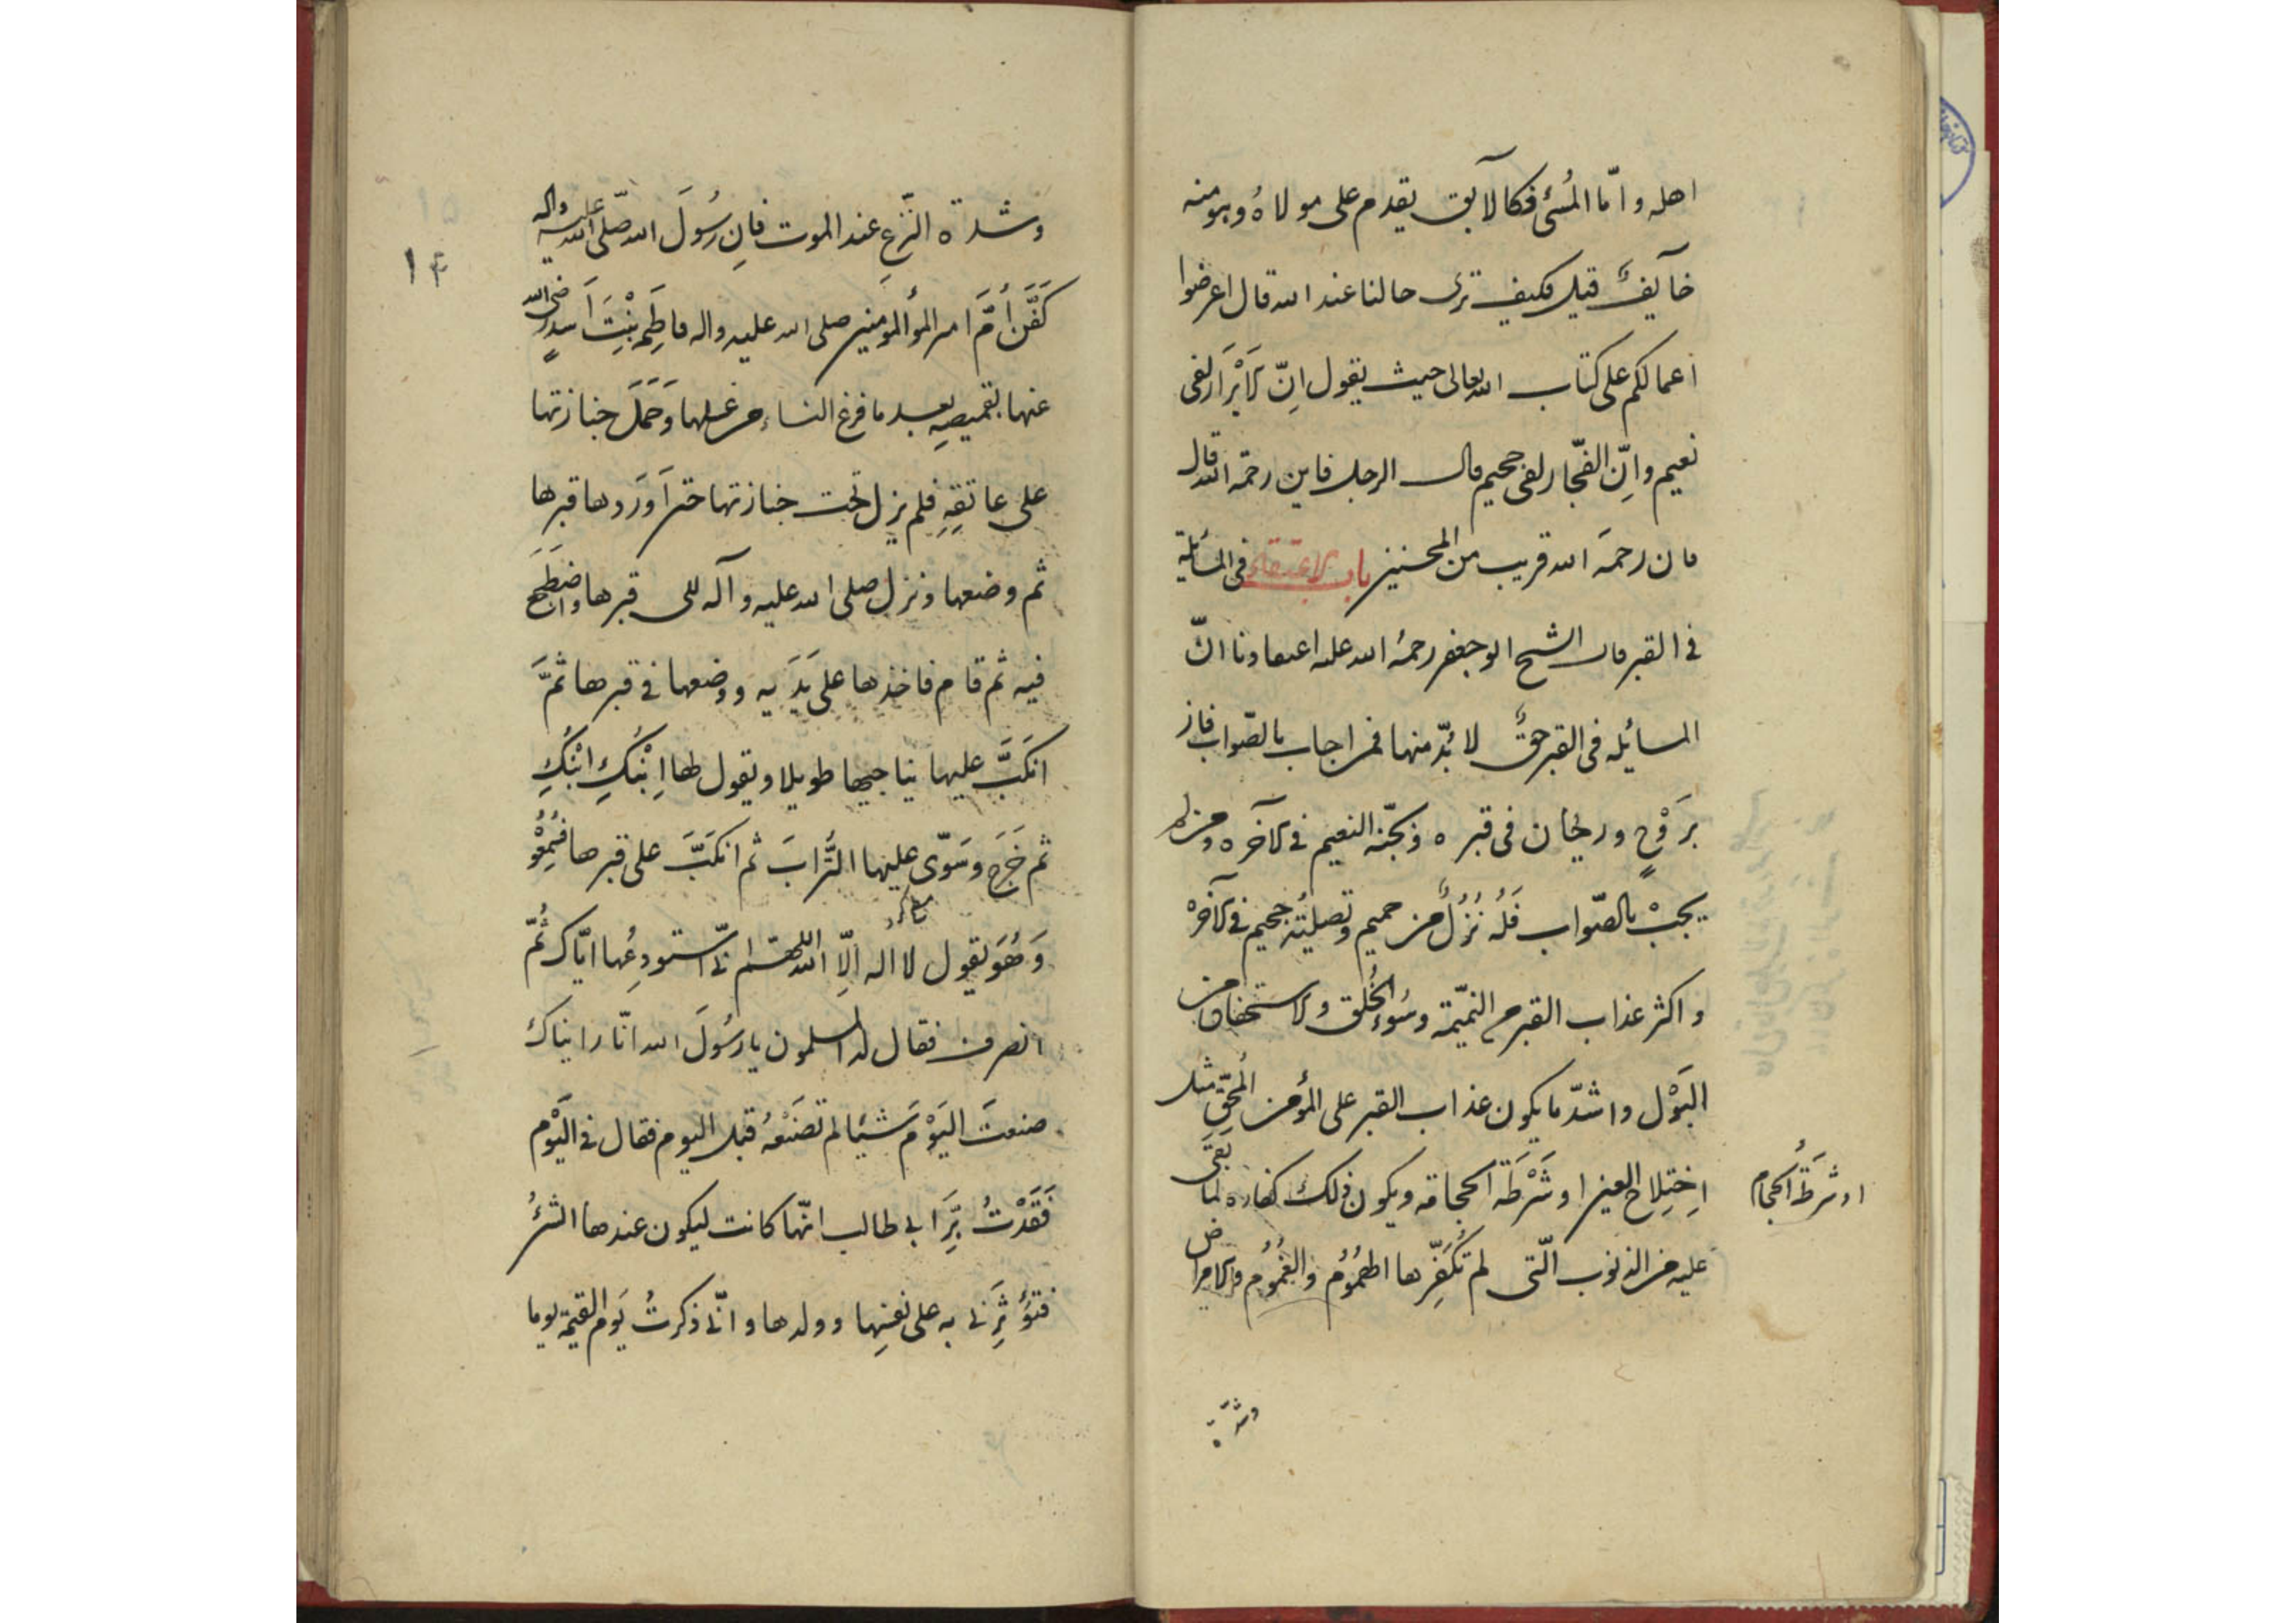 اهله و امّا المُسئ فكالآبق يقدم على مولاهُ و هو منه
خآيفٌ قيل فكيف ترى حالنا عند الله قال اعرضوا
اعمالكم على كتاب الله تعالى حيث يقول انّ الابْرَار لفى
نعيم و اِنّ الفجّار لفى جحيم قال الرجل فاين رحمة الله قال
ان رحمَة الله قريب من المحسنين باب الاعتقاد فى المسائلة
فى القبر قال الشيخ ابو جعفر رحمةُ الله عليه اعتقادنا انّ
المسايُله فى القبر حقٌّ لا بُدّ منها فمن اجاب بالصّواب فاز
بَروْحٍ و ريحان فى قبره و بجنّة النعيم فى الآخره و من لم
يجبْ بالصّواب فَلُه نُزُلٌ من حميم و تصليُة جحيم فى الآخرهْ
و اكثر عذاب القبر من النميّمة و سُوءِ الخُلق و الاستخفاف من
البَوْل و اشدّ ما يكون عذاب القبر على المؤمن المُحقِّ مثل
اِختِلاج العين او شَرْطَة الحجامة و يكون ذلك كفاره لما بَقَى
او شَرطَةُ الحجام
عليه من الذنوب الّتى لم تُكَفِّرها الهُمُومُ و الغُمُومُ و الامراض
و شدّة
و شدة النَّزعِ عند الموت فاِن رسُولَ الله صّلى الله عليه و اله
١٤
كَفَّنَ اُمَّ امير المؤالمؤمنين صلى الله عليه واله فاطِمه بنْتِ اَسدٍ رضى الله
عنها بقميصِهِ بعد ما فرغ النساءِ من غسلها وَ حَمَلَ جنازتها
على عاتقِهِ فلم يزل تحت جنازتها حتى اَورَدها قبرها
ثم وضعها و نزل صلى الله عليه و آله الى قبرها و اضْطَجَع
فيه ثم قام فاخذها على يَدَيه و وضعها فى قبرها ثمَّ
انكَبَّ عليها يناجيها طويلا و يقول لها اِبْنُكِ ابْنُكِ
ثم خَرَجَ و سَوّى عليها التُّرابَ ثم انكَبَّ على قبرها فَسُمِعُوْ
وَ هُوَ يقول لا اله اِلّا الله اللهمّ انّى استودِعُها ايّاك ثُمّ
انصرف فقال له المسلمون يا رسُولَ الله انّا رايناك
صنعتَ اليَوْمَ شيئا لم تصنَعْهُ قبل اليوم فقال فى اليَوْم
فَقَدْتُ بِرَّ ابى طالب انّها كانت ليكون عندها الشئُ
فتؤثِرَنى به على نفسِها و ولدها و انّى ذكرتُ يَوم القيمَة يوما